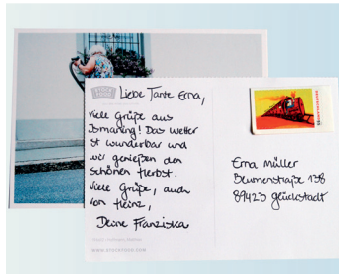 Liebe Tante Erna,
viele Grüße aus
Ismaning! Das Wetter
ist wunderbar und
wir genießen den
schönen Herbst.
Viele Grüße, auch
von Heinz,
Deine Franziska
WWW.STOCKFOOD.COM
Erna Müller
Blumenstraße 138
89423 Glückstadt